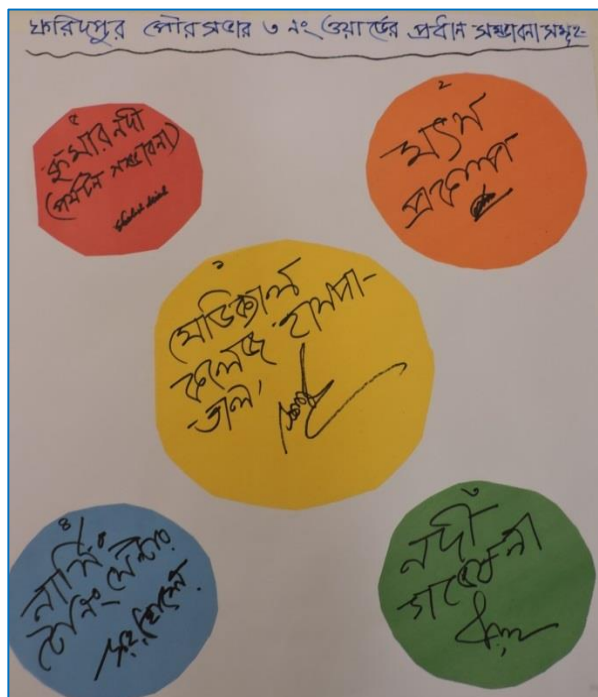 ফরিদপুর পৌরসভার ৩ নং ওয়ার্ডের প্রধান সম্ভাবনা সমূহ-
৫
কুমার নদী
(পর্যটন সম্ভাবনা)
২
মৎস
প্রকল্প
১
মেডিক্যাল
কলেজ হাসপা-
তাল,
৪
নার্সিং
ট্রেনিং সেন্টার
৩
নদী
গবেষনা